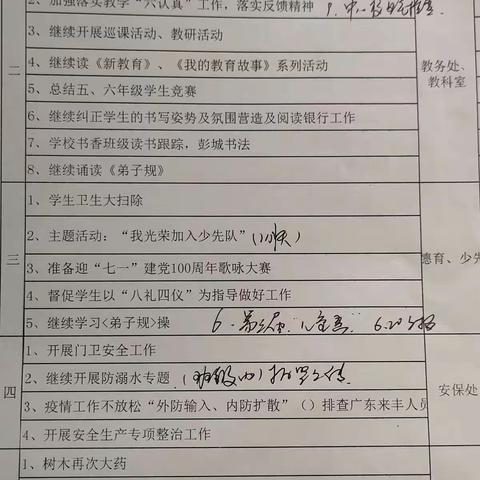 2、加强落实教学“六认真”工作，落实反馈精神 9.
二
3、继续开展巡课活动、教研活动
教务处、
教科室
4、继续读《新教育》、《我的教育故事》系列活动
5、总结五、六年级学生竞赛
6、继续纠正学生的书写姿势及氛围营造及阅读银行工作
7、学校书香班级读书跟踪，彭城书法
8、继续诵读《弟子规》
三
1、学生卫生大扫除
2、主题活动：“我光荣加入少先队”
德育、少先
3、准备迎“七一”建党100周年歌咏大赛
4、督促学生以“八礼四仪”为指导做好工作
5、继续学习<弟子规>操 6.
四
1、开展门卫安全工作
2、继续开展防溺水专题
安保处
3、疫情工作不放松“外防输入、内防扩散”（）排查广东来丰人员
4、开展安全生产专项整治工作
1、树木再次大药